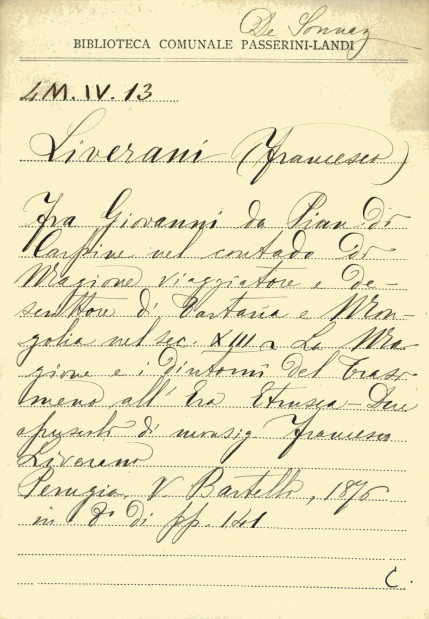 De Sonnaz
BIBLIOTECA COMUNALE PASSERINI-LANDI
4 M. IV. 13
Liverani (Francesco)
Fra Giovanni da Pian di
Carpine nel contado di
Magione viaggiatore e de-
scrittore di Tartaria e Mon-
golia nel sec. XIII e La Ma
gione e i dintorni del Trasi
meno all' Era Etrusca - Due
opuscoli di monsig. Francesco
Liverani
Perugia, V. Bartelli, 1876
in 8° di pp. 141
C.